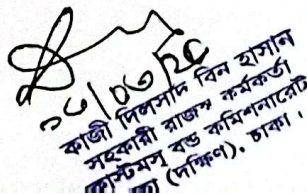 কাজী দিলসাদ বিন হাসান
সহকারী রাজস্ব কর্মকর্তা
কাস্টমস্ বন্ড কমিশনারেট
(দক্ষিণ), ঢাকা।